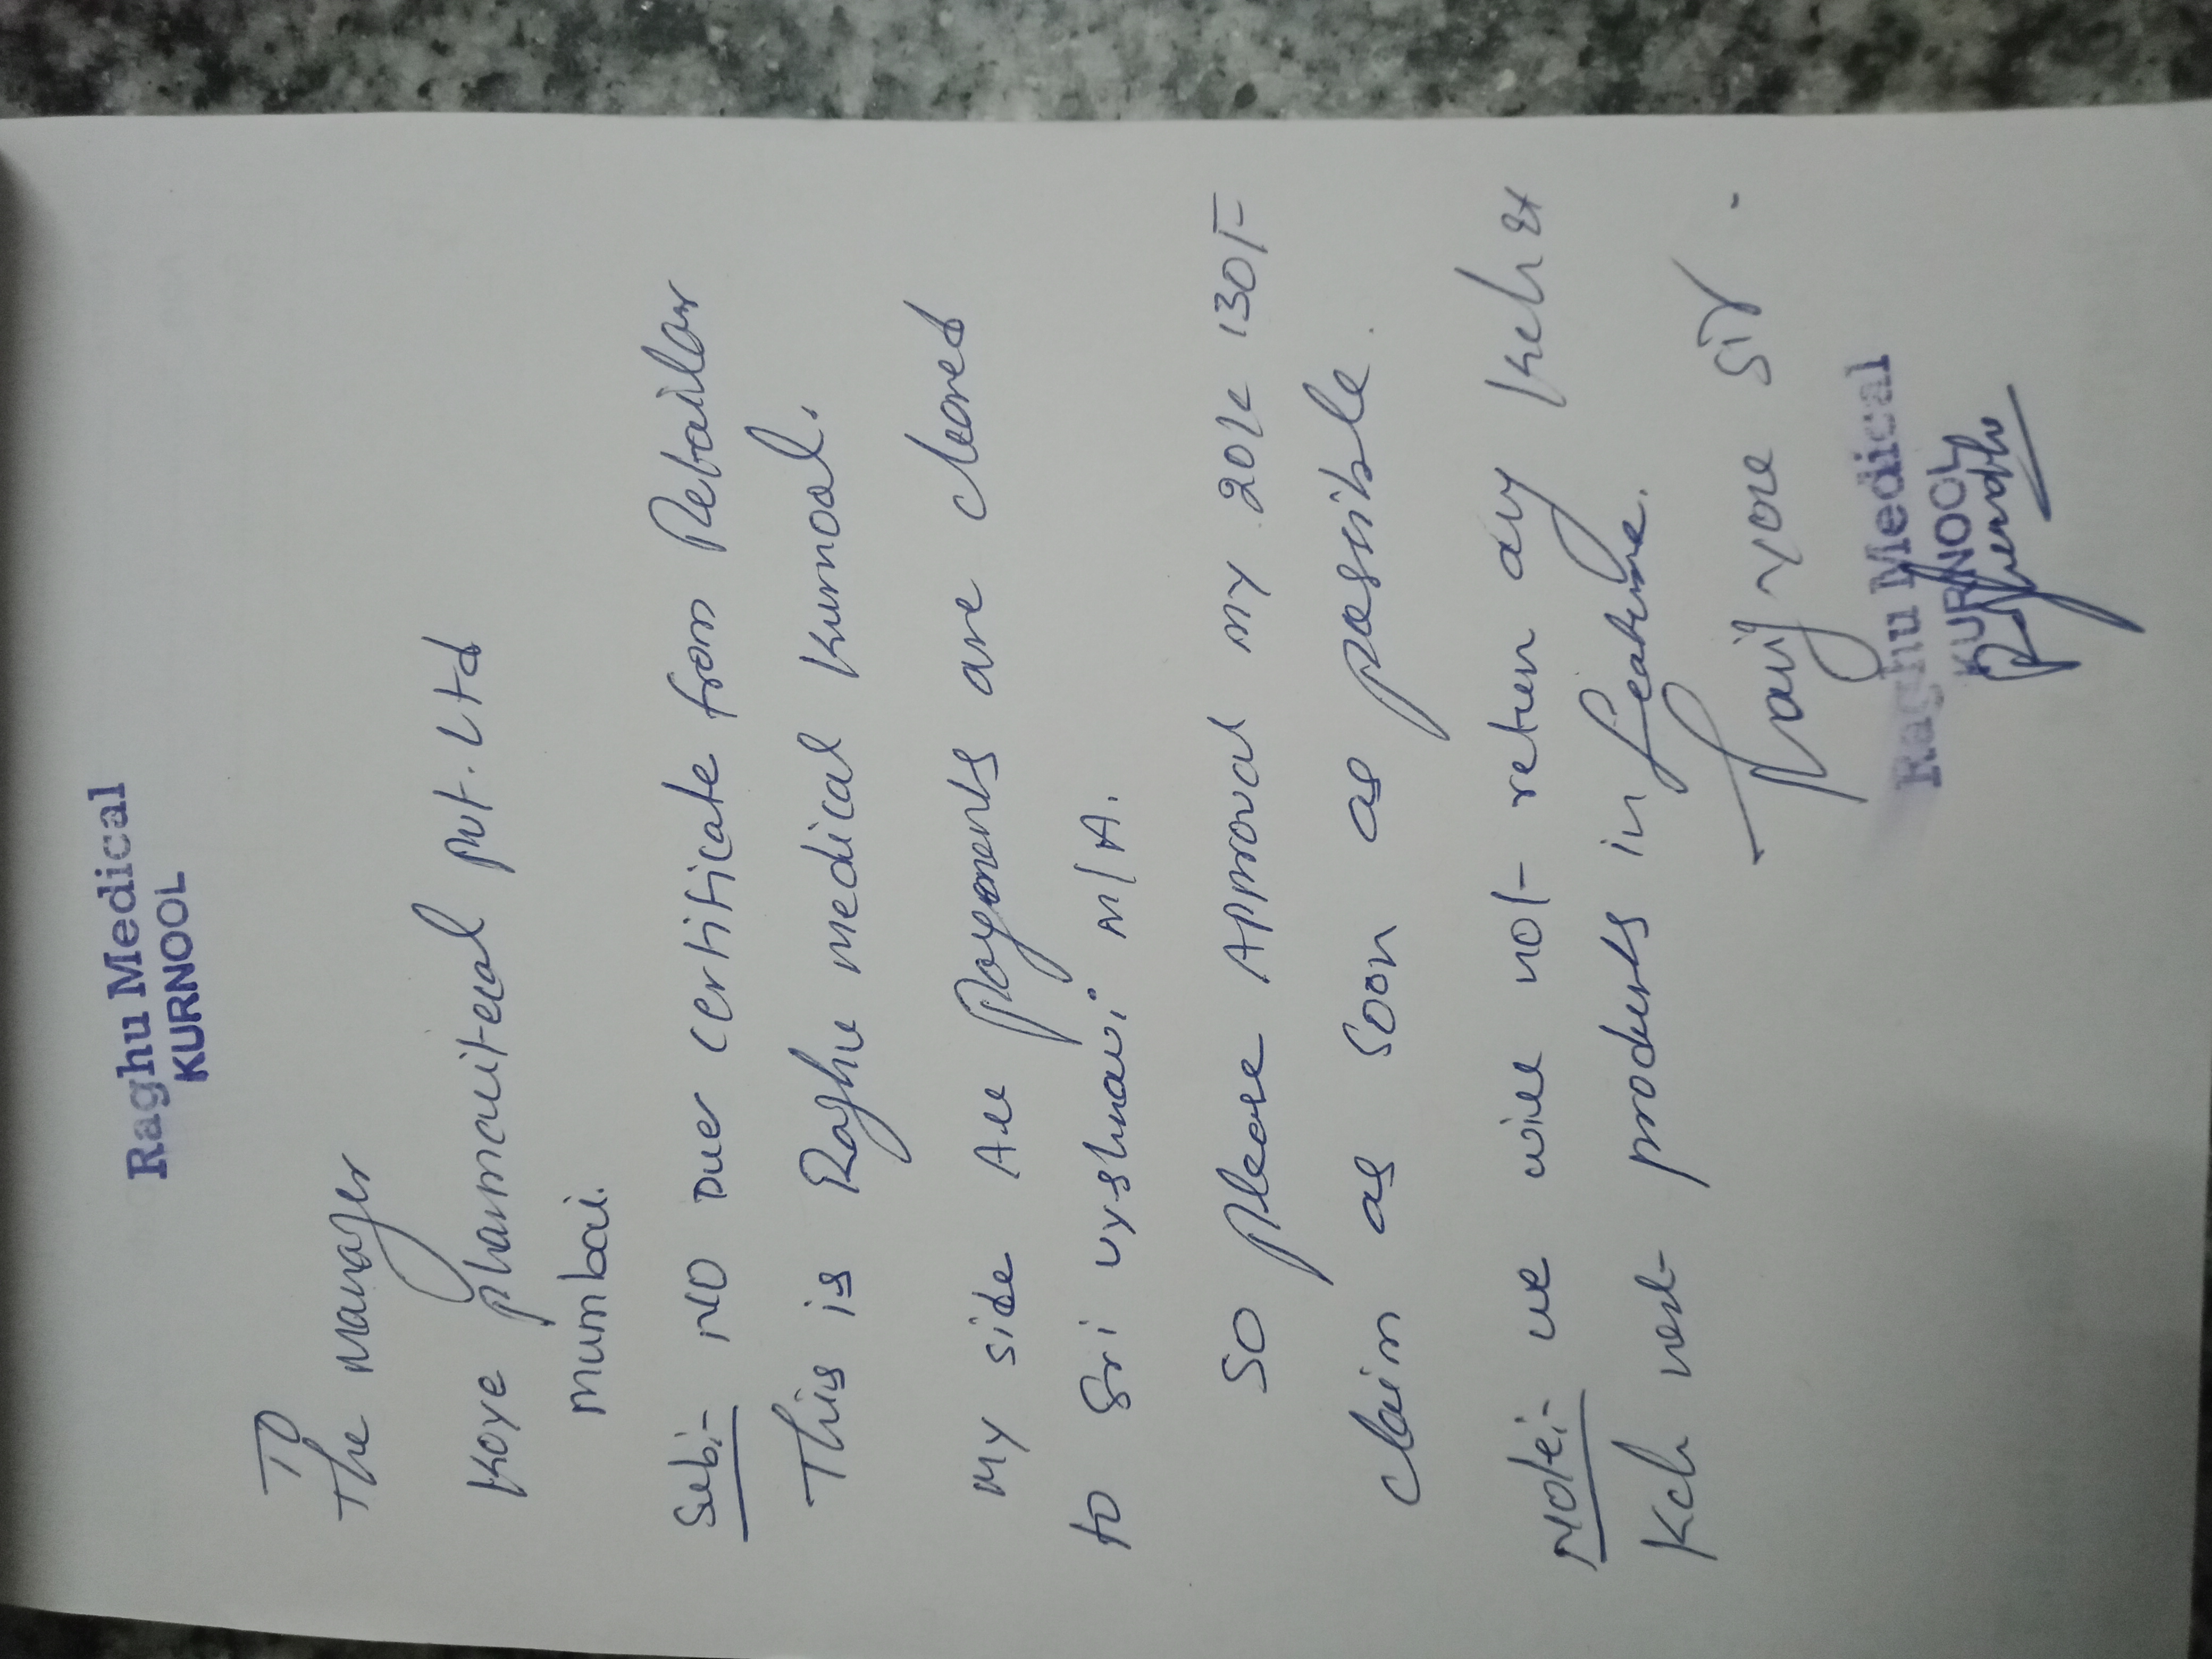 Raghu Medical
KURNOOL
TO
The manager
Koye pharmacuitecal pvt. Ltd
mumbai.
Sub:- NO Due certificate from Retailor
This is Raghu medical Kurnool.
My side All Payments are cleared
to Sri vyshnavi M/A.
SO Please Approval my 130/-
claim as soon as possible.
Note:- we will not return any
Kch products in feature.
Thanq you sir.
Raghu Medical
KURNOOL